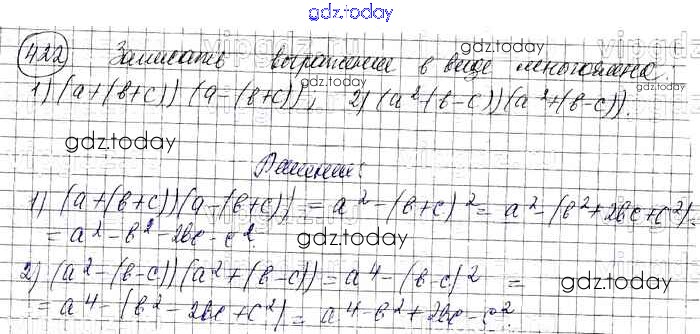 gdz.today
422 Записать выражение в виде многочлена.
gdz.today
1) (a+(b+c)) (a-(b+c)); 2) (a²-(b-c))(a²+(b-c)).
gdz.today
gdz.today
Решение:
1) (a+(b+c))(a-(b+c)) = a²-(b+c)² = a²-(b²+2bc+c²)=
= a²-b²-2bc-c².
gdz.today
2) (a²-(b-c))(a²+(b-c)) = a⁴-(b-c)² =
gdz.today
= a⁴-(b²-2bc+c²) = a⁴-b²+2bc-c²